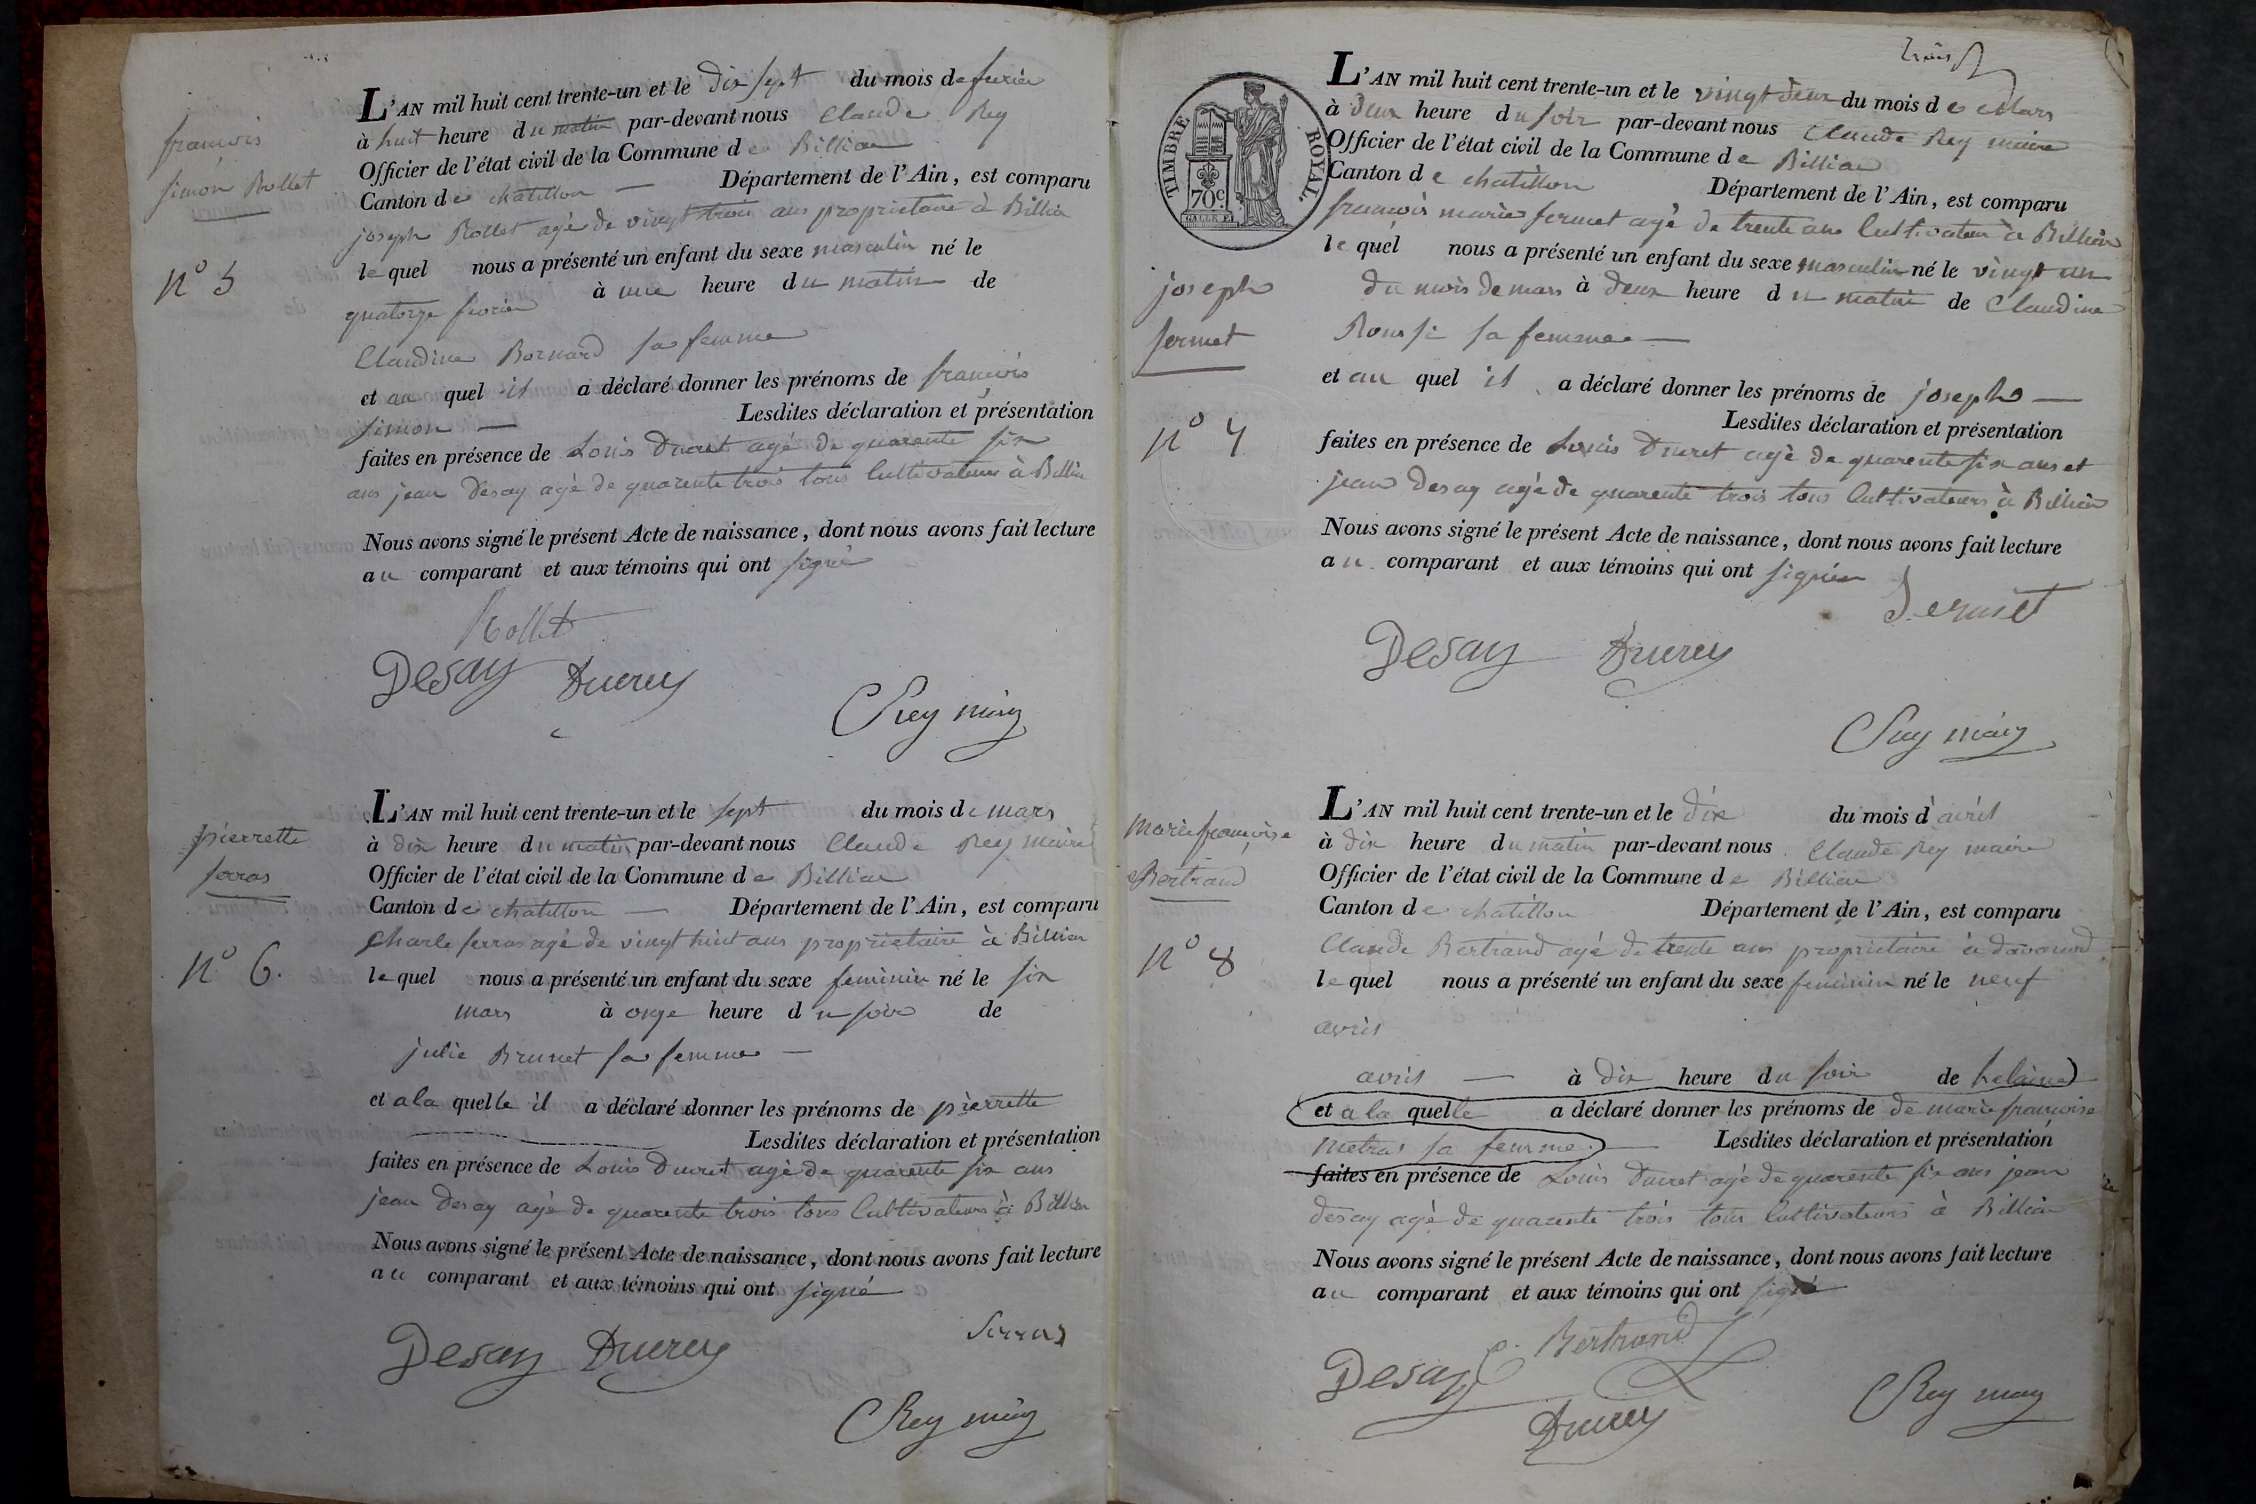 françois
simon Rollet
n° 5
L'AN mil huit cent trente-un et le dix sept du mois de fevrier
à huit heure du matin par-devant nous Claude Rey
Officier de l'état civil de la Commune de Billiat
Canton de chatillon — Département de l'Ain, est comparu
joseph Rollet agé de vingt trois ans proprietaire à Billiat
lequel nous a présenté un enfant du sexe masculin né le
quatorze fevrier à une heure du matin de
Claudine Bornard sa femme
et au quel il a déclaré donner les prénoms de françois
simon — Lesdites déclaration et présentation
faites en présence de Louis Ducret agé de quarente six
ans jean Desay agé de quarente trois tous Cultivateurs à Billiat
Nous avons signé le présent Acte de naissance, dont nous avons fait lecture
au comparant et aux témoins qui ont signé
Rollet
Desay Ducrey
C Rey maire
pierrette
serras
n° 6.
L'AN mil huit cent trente-un et le sept du mois de mars
à dix heure du matin par-devant nous Claude Rey maire
Officier de l'état civil de la Commune de Billiat
Canton de chatillon — Département de l'Ain, est comparu
Charle serras agé de vingt huit ans proprietaire à Billiat
lequel nous a présenté un enfant du sexe feminin né le six
mars à onze heure du soir de
julie Brunet sa femme —
et a la quelle il a déclaré donner les prénoms de pierrette
Lesdites déclaration et présentation
faites en présence de Louis Ducret agé de quarente six ans
jean Desay agé de quarente trois tous Cultivateurs à Billiat
Nous avons signé le présent Acte de naissance, dont nous avons fait lecture
au comparant et aux témoins qui ont signé
Serras
Desay Ducrey
C Rey maire
trois
TIMBRE ROYAL.
70c.
L'AN mil huit cent trente-un et le vingt deux du mois de Mars
à deux heure du soir par-devant nous Claude Rey maire
Officier de l'état civil de la Commune de Billiat
Canton de chatillon Département de l'Ain, est comparu
françois marie fermet agé de trente ans Cultivateur à Billiat
lequel nous a présenté un enfant du sexe masculin né le vingt un
du mois de mars à deux heure du matin de Claudine
sa femme —
joseph
fermet
n° 7
et au quel il a déclaré donner les prénoms de joseph —
Lesdites déclaration et présentation
faites en présence de Louis Ducret agé de quarente six ans et
jean Desay agé de quarente trois tous Cultivateurs à Billiat
Nous avons signé le présent Acte de naissance, dont nous avons fait lecture
au comparant et aux témoins qui ont signé
fermet
Desay Ducrey
C Rey maire
Marie françoise
Bertrand
n° 8
L'AN mil huit cent trente-un et le dix du mois d'avril
à dix heure du matin par-devant nous Claude Rey maire
Officier de l'état civil de la Commune de Billiat
Canton de chatillon Département de l'Ain, est comparu
Claude Bertrand agé de trente ans proprietaire à davanod
lequel nous a présenté un enfant du sexe feminin né le neuf
avril
avril — à dix heure du soir de helaine
et a la quelle a déclaré donner les prénoms de de marie françoise
metras sa femme. — Lesdites déclaration et présentation
faites en présence de Louis Ducret agé de quarente six ans jean
desay agé de quarente trois tous Cultivateurs à Billiat
Nous avons signé le présent Acte de naissance, dont nous avons fait lecture
au comparant et aux témoins qui ont signé
C. Bertrand
Desay
Ducrey
C Rey maire